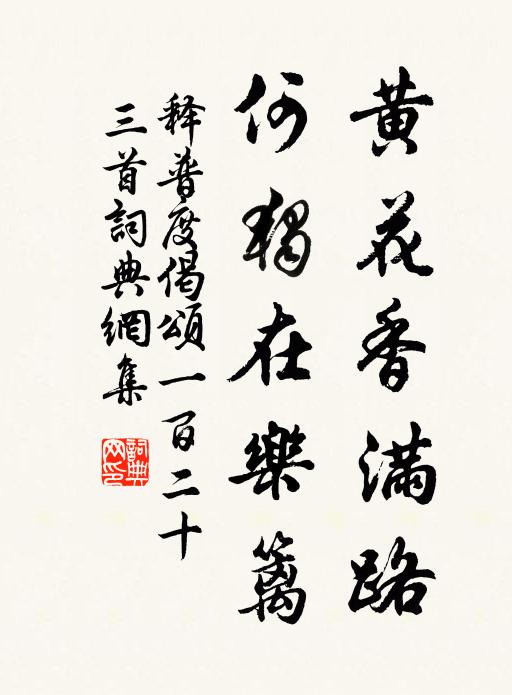 黄花香滿路
何獨在樂籬
释普度偈頌一百二十
三首詞典網集
詞典
网印